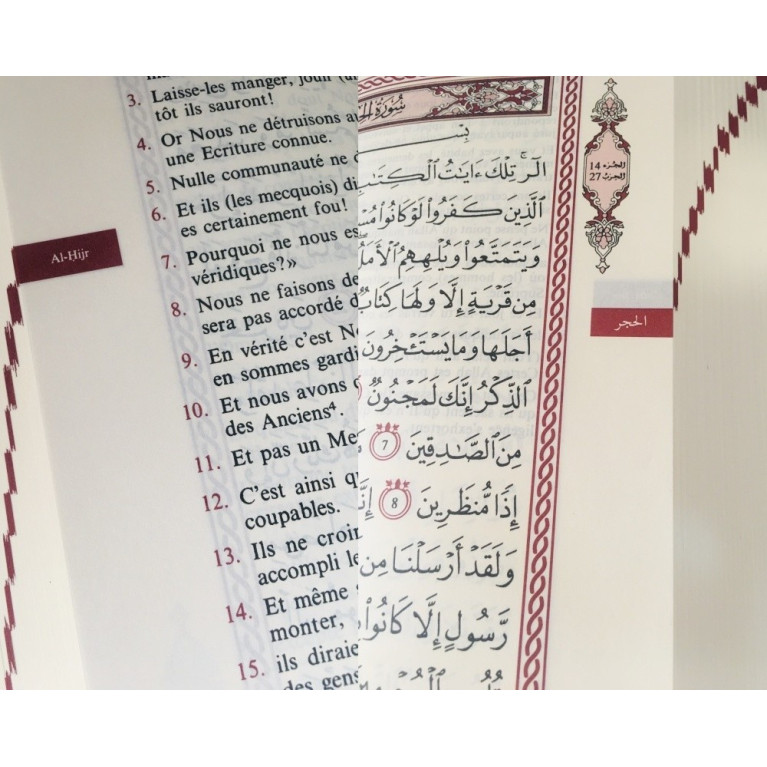 Al-Hijr
3. Laisse-les manger, jouir
tôt ils sauront!
4. Or Nous ne détruisons
une Ecriture connue.
5. Nulle communauté ne
6. Et ils (les mecquois)
es certainement fou!
7. Pourquoi ne nous
véridiques?»
8. Nous ne faisons
sera pas accordé
9. En vérité c'est
en sommes
10. Et nous avons
des Anciens⁴.
11. Et pas un
12. C'est ainsi
coupables.
13. Ils ne
accompli
14. Et même
monter,
15. ils
des
سُورَةُ
الٓرۚ تِلْكَ ءَايَٰتُ ٱلْكِتَٰبِ
ٱلَّذِينَ كَفَرُوا۟ لَوْ كَانُوا۟
وَيَتَمَتَّعُوا۟ وَيُلْهِهِمُ ٱلْأَمَلُ
مِن قَرْيَةٍ إِلَّا وَلَهَا كِتَابٌ
أَجَلَهَا وَمَا يَسْتَـْٔخِرُونَ
ٱلذِّكْرُ إِنَّكَ لَمَجْنُونٌ
مِنَ ٱلصَّٰدِقِينَ 7
إِذًا مُّنظَرِينَ 8 إِنَّا
وَلَقَدْ أَرْسَلْنَا مِن
رَّسُولٍ إِلَّا كَانُوا۟
الجزء 14
الحزب 27
الحجر